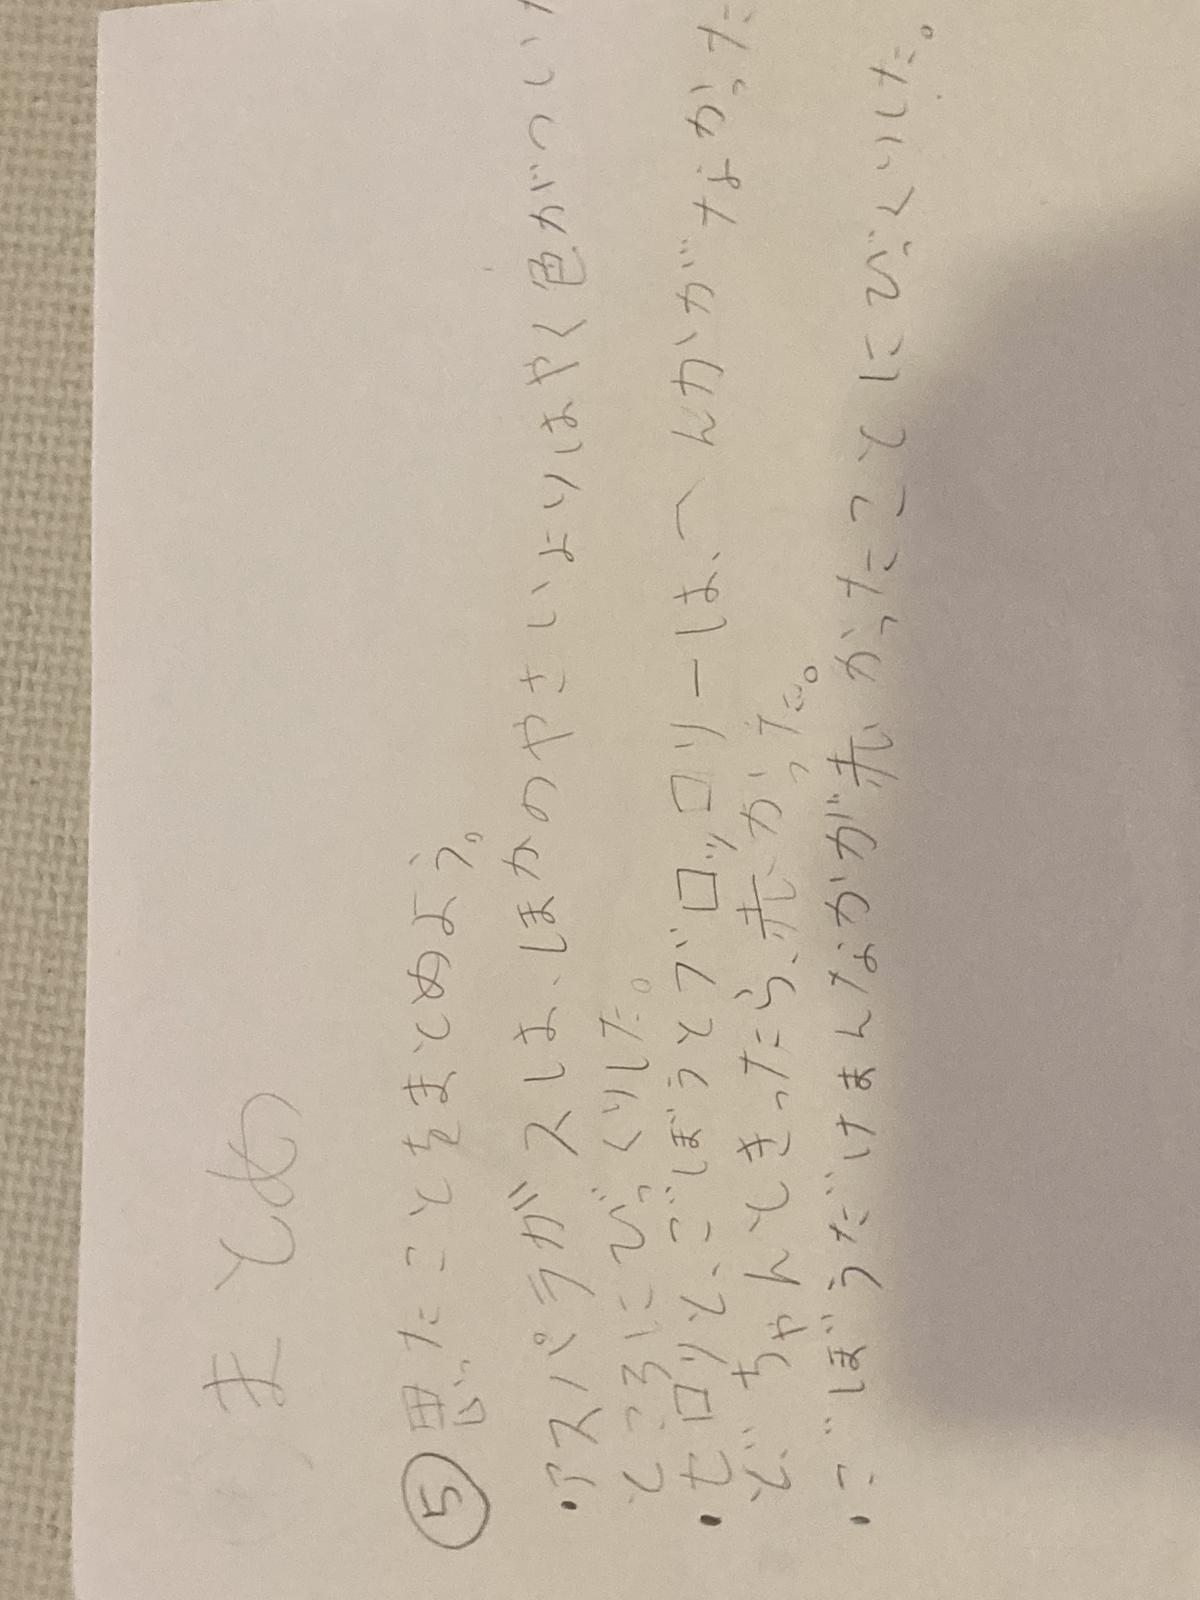 まとめ
⑤思ったことをまとめよう。
・アスパラガスは、ほかのやさいよりはやく色がつい
ところにびっくりした。
・セロリと、ごぼうとブロッロリーは、へんかがなかった
ど、ちゃんときったら、赤かった。
・ごぼうだけまんなかが赤かったことにびっくりした。